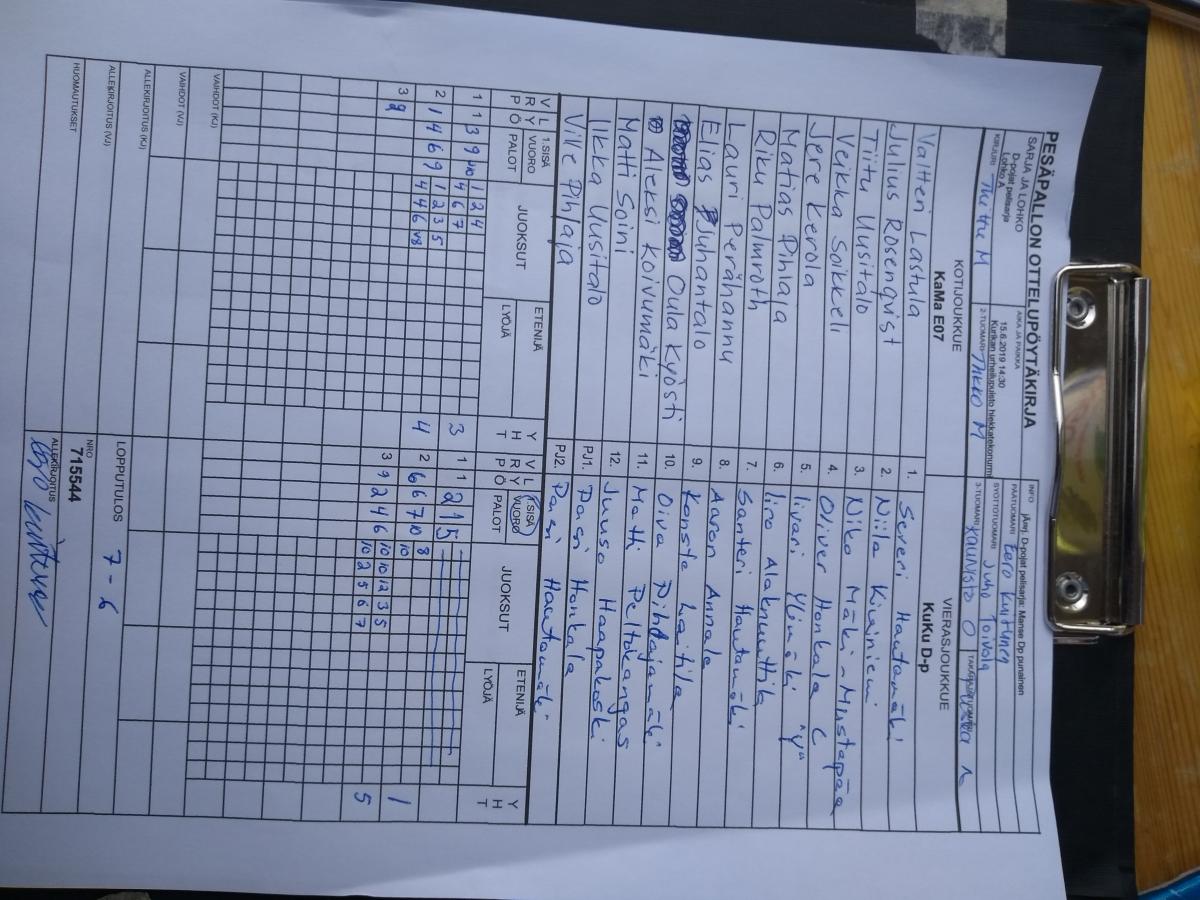 PESÄPALLON OTTELUPÖYTÄKIRJA
SARJA JA LOHKO
D-pojat pelisarja
Lohko A
AIKA JA PAIKKA
15.6.2019 14:30
Kurikan urheilupuisto hiekkatekonurmi
INFO
jÄarj. D-pojat pelisarja: Manse Dp punainen
PÄÄTUOMARI Eero Kuittinen
SYÖTTÖTUOMARI Juho Toivola
KIRJURI M
2-TUOMARI M
3-TUOMARI Kaunisto O
KOTIJOUKKUE
KaMa E07
VIERASJOUKKUE
KuKu D-p
Valtteri Lastula 1. Severi Hautamäki
Julius Rosenqvist 2. Niila Kiviniemi
Tiitu Uusitalo 3. Niko Mäki-Mustapää
Veikka Soikkeli 4. Oliver Honkala C
Jere Kerola 5. Iivari Ylimäki "V"
Matias Pihlaja 6. Iiro Alaknuuttila
Riku Palmroth 7. Santeri Hautamäki
Lauri Perähannu 8. Aaron Annala
Elias Juhantalo 9. Konsta Laitila
Oula Kyösti 10. Oiva Pihlajamäki
Aleksi Koivumäki 11. Matti Peltokangas
Matti Soini 12. Juuso Haapakoski
Ilkka Uusitalo PJ1. Pasi Honkala
Ville Pihlaja PJ2. Pasi Hautamäki
V R P L Y Ö 1.SISÄ VUORO PALOT JUOKSUT ETENIJÄ LYÖJÄ Y H T
V R P L Y Ö 1.SISÄ VUORO PALOT JUOKSUT ETENIJÄ LYÖJÄ Y H T
1 1 3 9 10 1 2 4
4 6 7 3
2 1 4 6 9 1 2 3 5
4 4 6 8 4
3 9
1 1 2 1 5
2 6 6 7 10 8
10 1
3 9 2 4 6 10 10 12 3 5
10 2 5 6 7 5
VAIHDOT (KJ)
VAIHDOT (VJ)
ALLEKIRJOITUS (KJ)
ALLEKIRJOITUS (VJ)
LOPPUTULOS 7 - 6
HUOMAUTUKSET
NRO
715544
ALLEKIRJOITUS
Eero Kuittinen